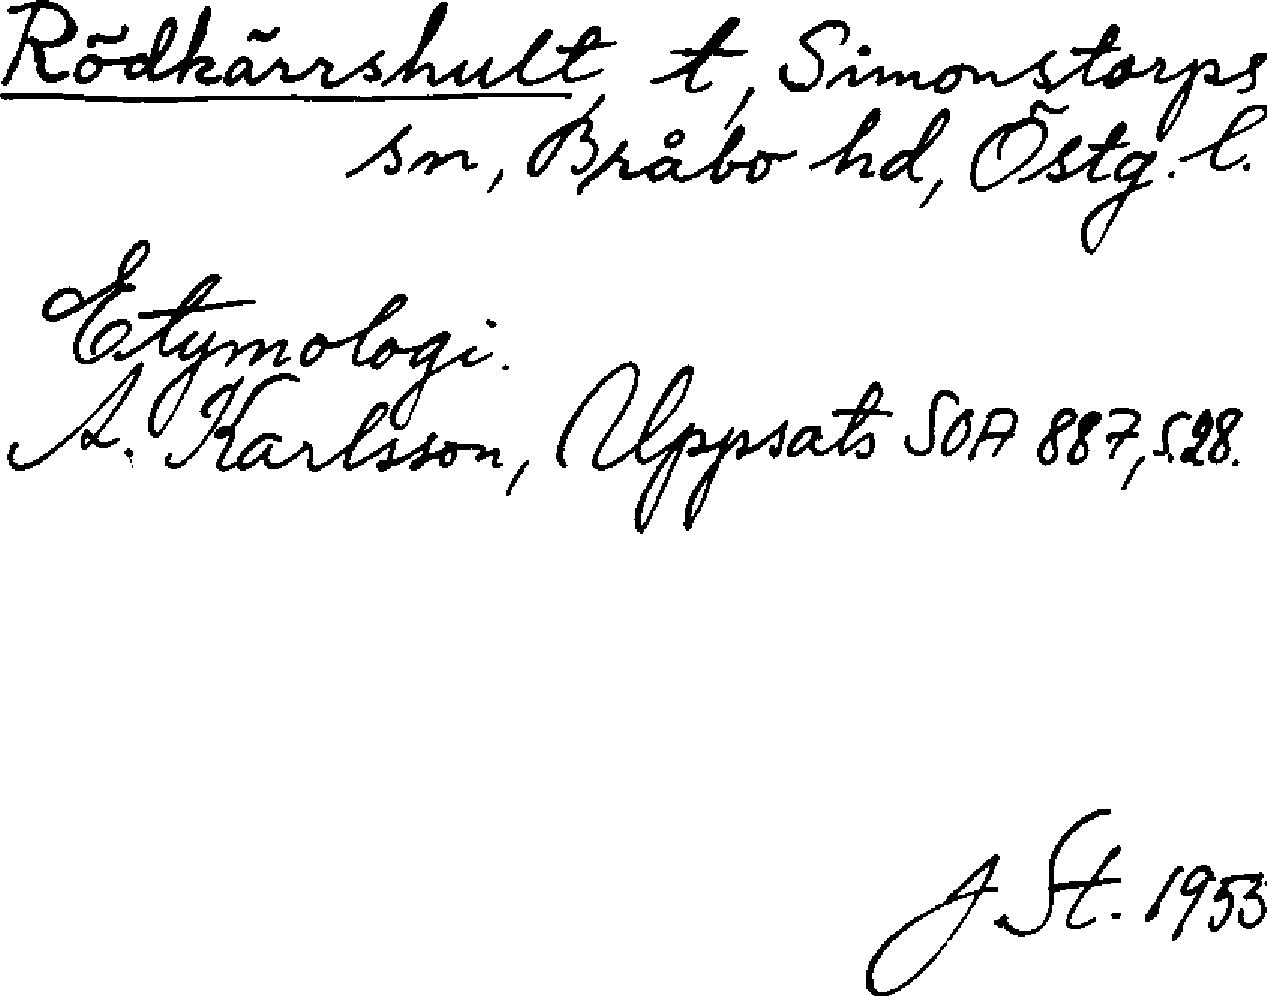 Rödkärrshult, t, Simonstorps
sn, Bråbo hd, Östg. l.
Etymologi.
A. Karlsson, Uppsats SOA 887, s.28.
J. St. 1953